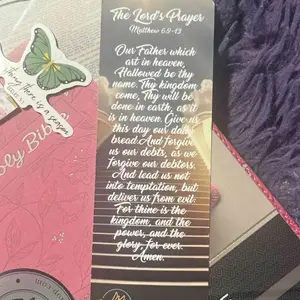 The Lord's Prayer
Matthew 6:9-13
Our Father which
art in heaven,
Hallowed be thy
name. Thy kingdom
come, Thy will be
done in earth, as it
is in heaven. Give us
this day our daily
bread. And forgive
us our debts, as we
forgive our debtors.
And lead us not
into temptation, but
deliver us from evil:
For thine is the
kingdom, and the
power, and the
glory, for ever.
Amen.
Holy Bible